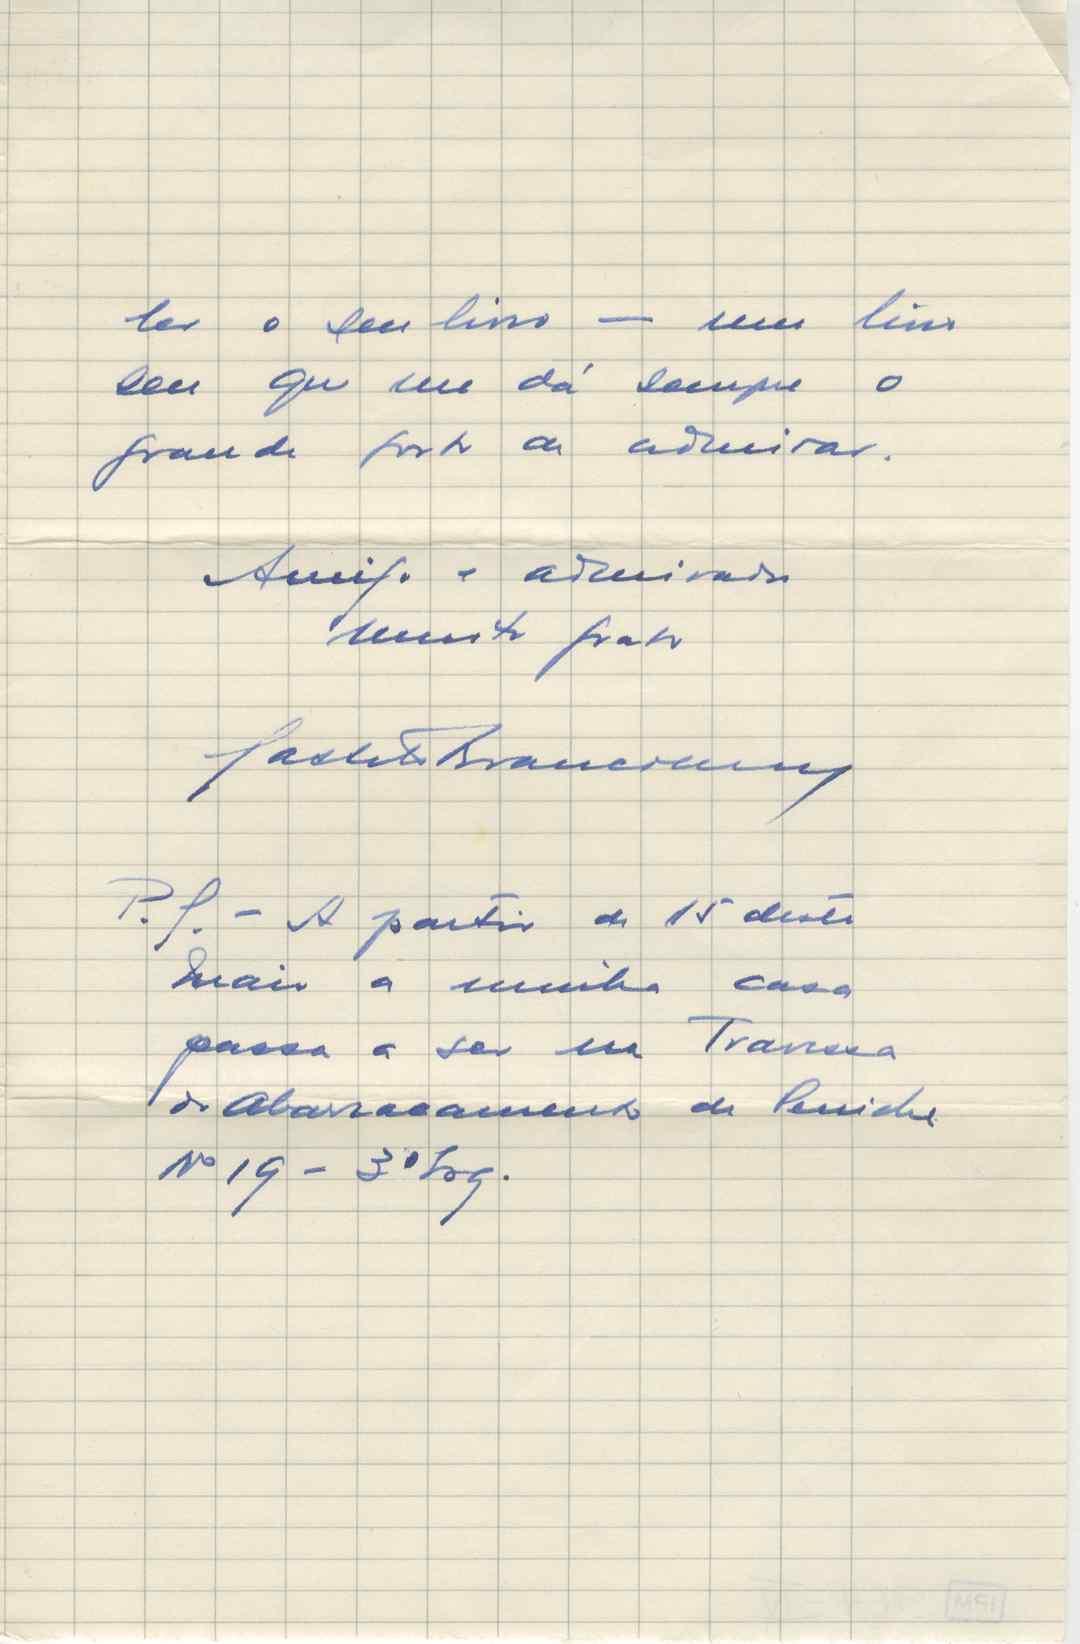 ler o seu livro — um livro
seu que me dá sempre o
grande gosto de admirar.
Amigo e admirador
muito grato
Castelo Branco Chaves
P.S. - A partir de 15 deste
Maio a minha casa
passa a ser na Travessa
do Abarracamento de Peniche
Nº 19 - 3º Esq.